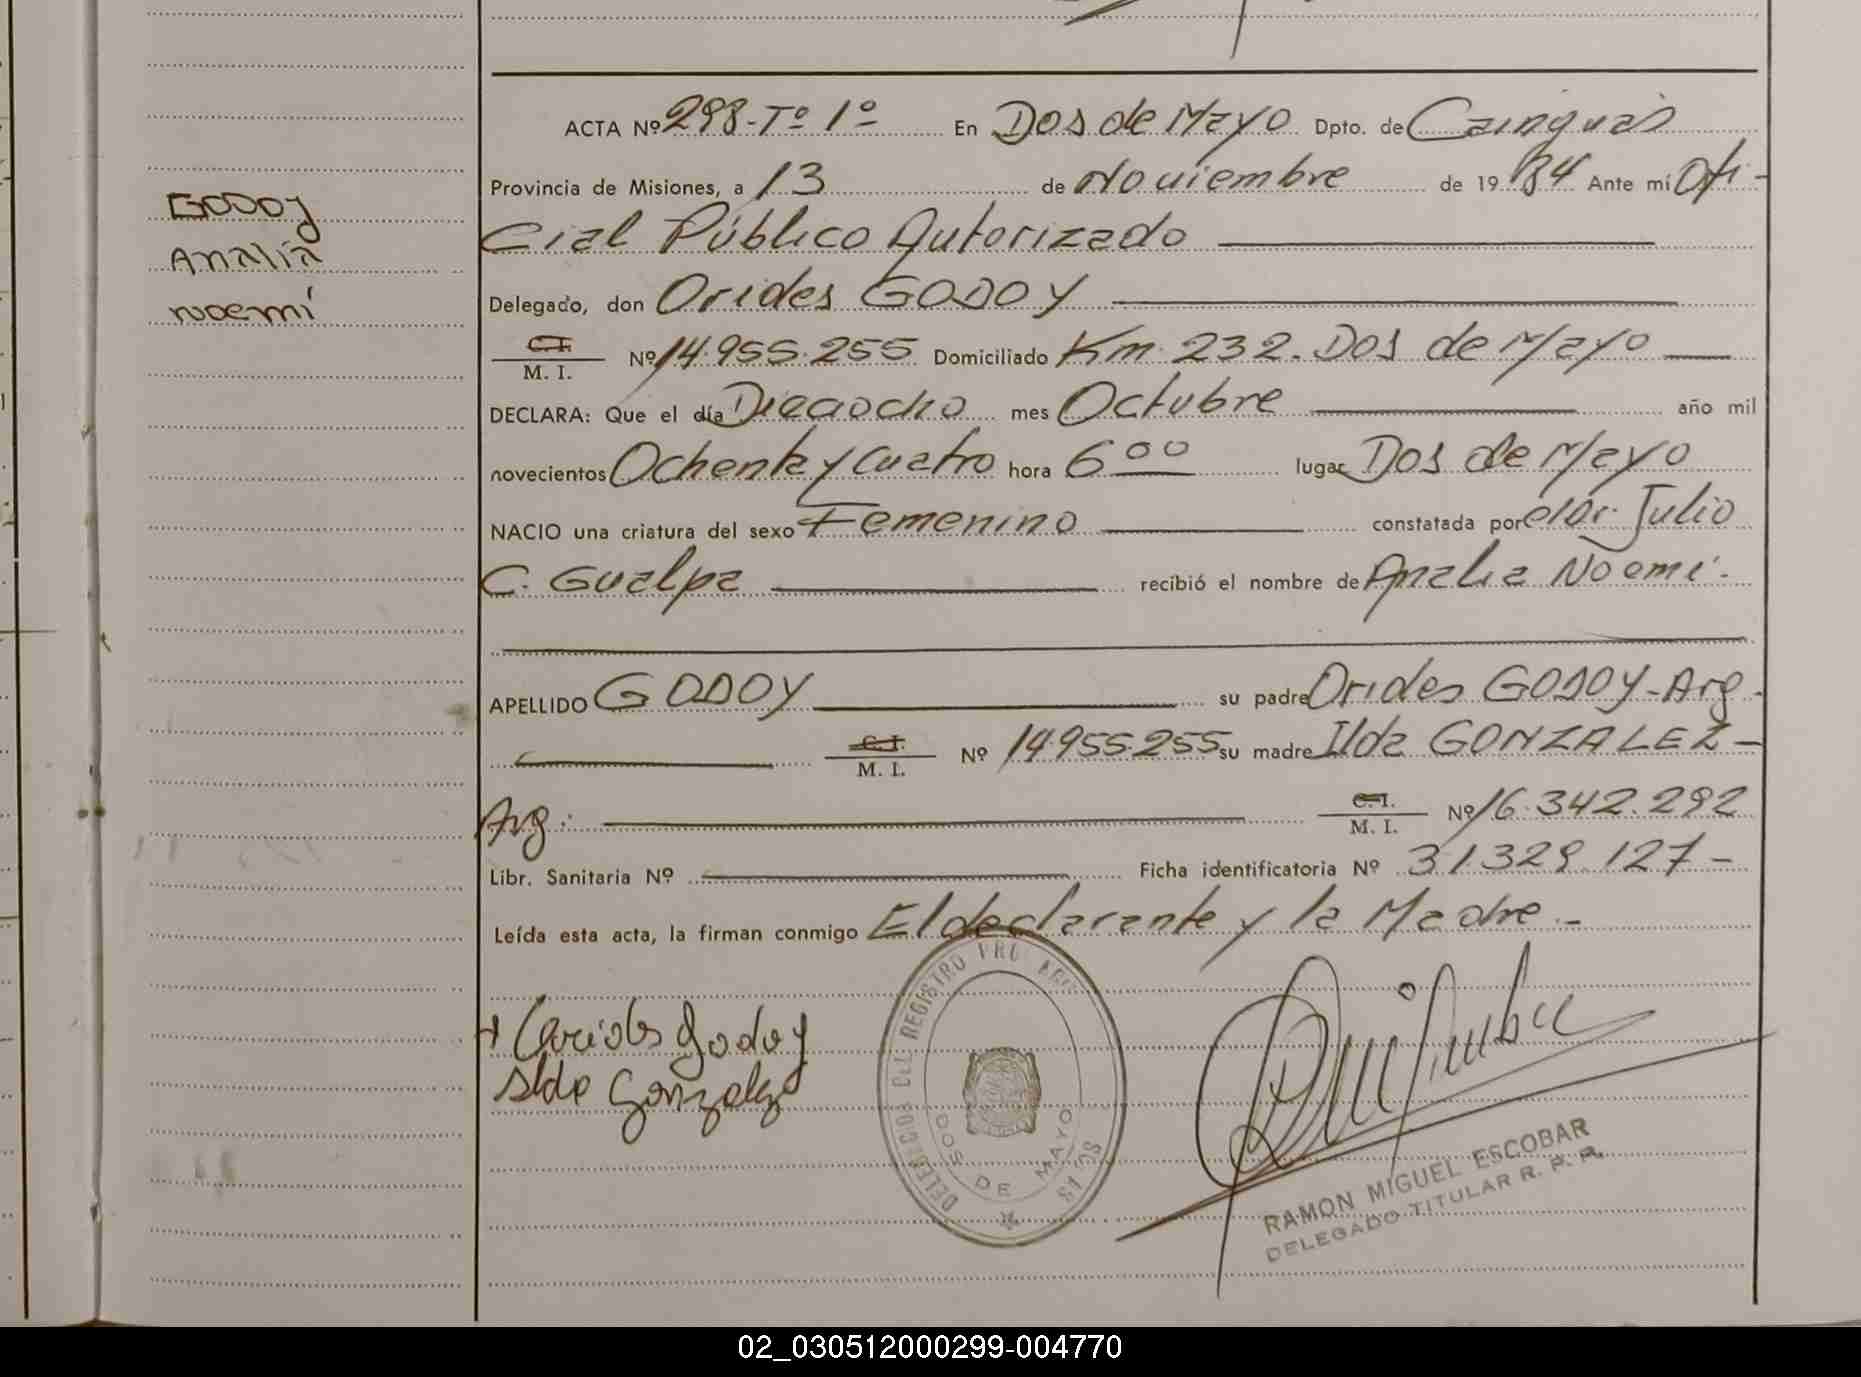 GODOY
Analía
Noemí
ACTA Nº 298-Tº 1º En Dos de Mayo Dpto. de Cainguás
Provincia de Misiones, a 13 de Noviembre de 1984 Ante mí Ofi-
cial Público Autorizado
Delegado, don Orides GODOY
C.I. M. I. Nº 14.955.255 Domiciliado Km. 232. Dos de Mayo
DECLARA: Que el día Dieciocho mes Octubre año mil
novecientos Ochenta y cuatro hora 6 00 lugar Dos de Mayo
NACIO una criatura del sexo Femenino constatada por el Dr. Julio
C. Gualpa recibió el nombre de Analia Noemí.
APELLIDO GODOY su padre Orides GODOY-Arg.
C.I. M. I. Nº 14.955.255 su madre Ilda GONZALEZ-
Arg. C.I. M. I. Nº 16.342.292
Libr. Sanitaria Nº Ficha identificatoria Nº 31.329.127-
Leída esta acta, la firman conmigo El declarante y la Madre.-
Godoy
Ilda Gonzalez
DELEGACION DEL REGISTRO
DOS DE MAYO
RAMON MIGUEL ESCOBAR
DELEGADO TITULAR R. P. P.
02_030512000299-004770